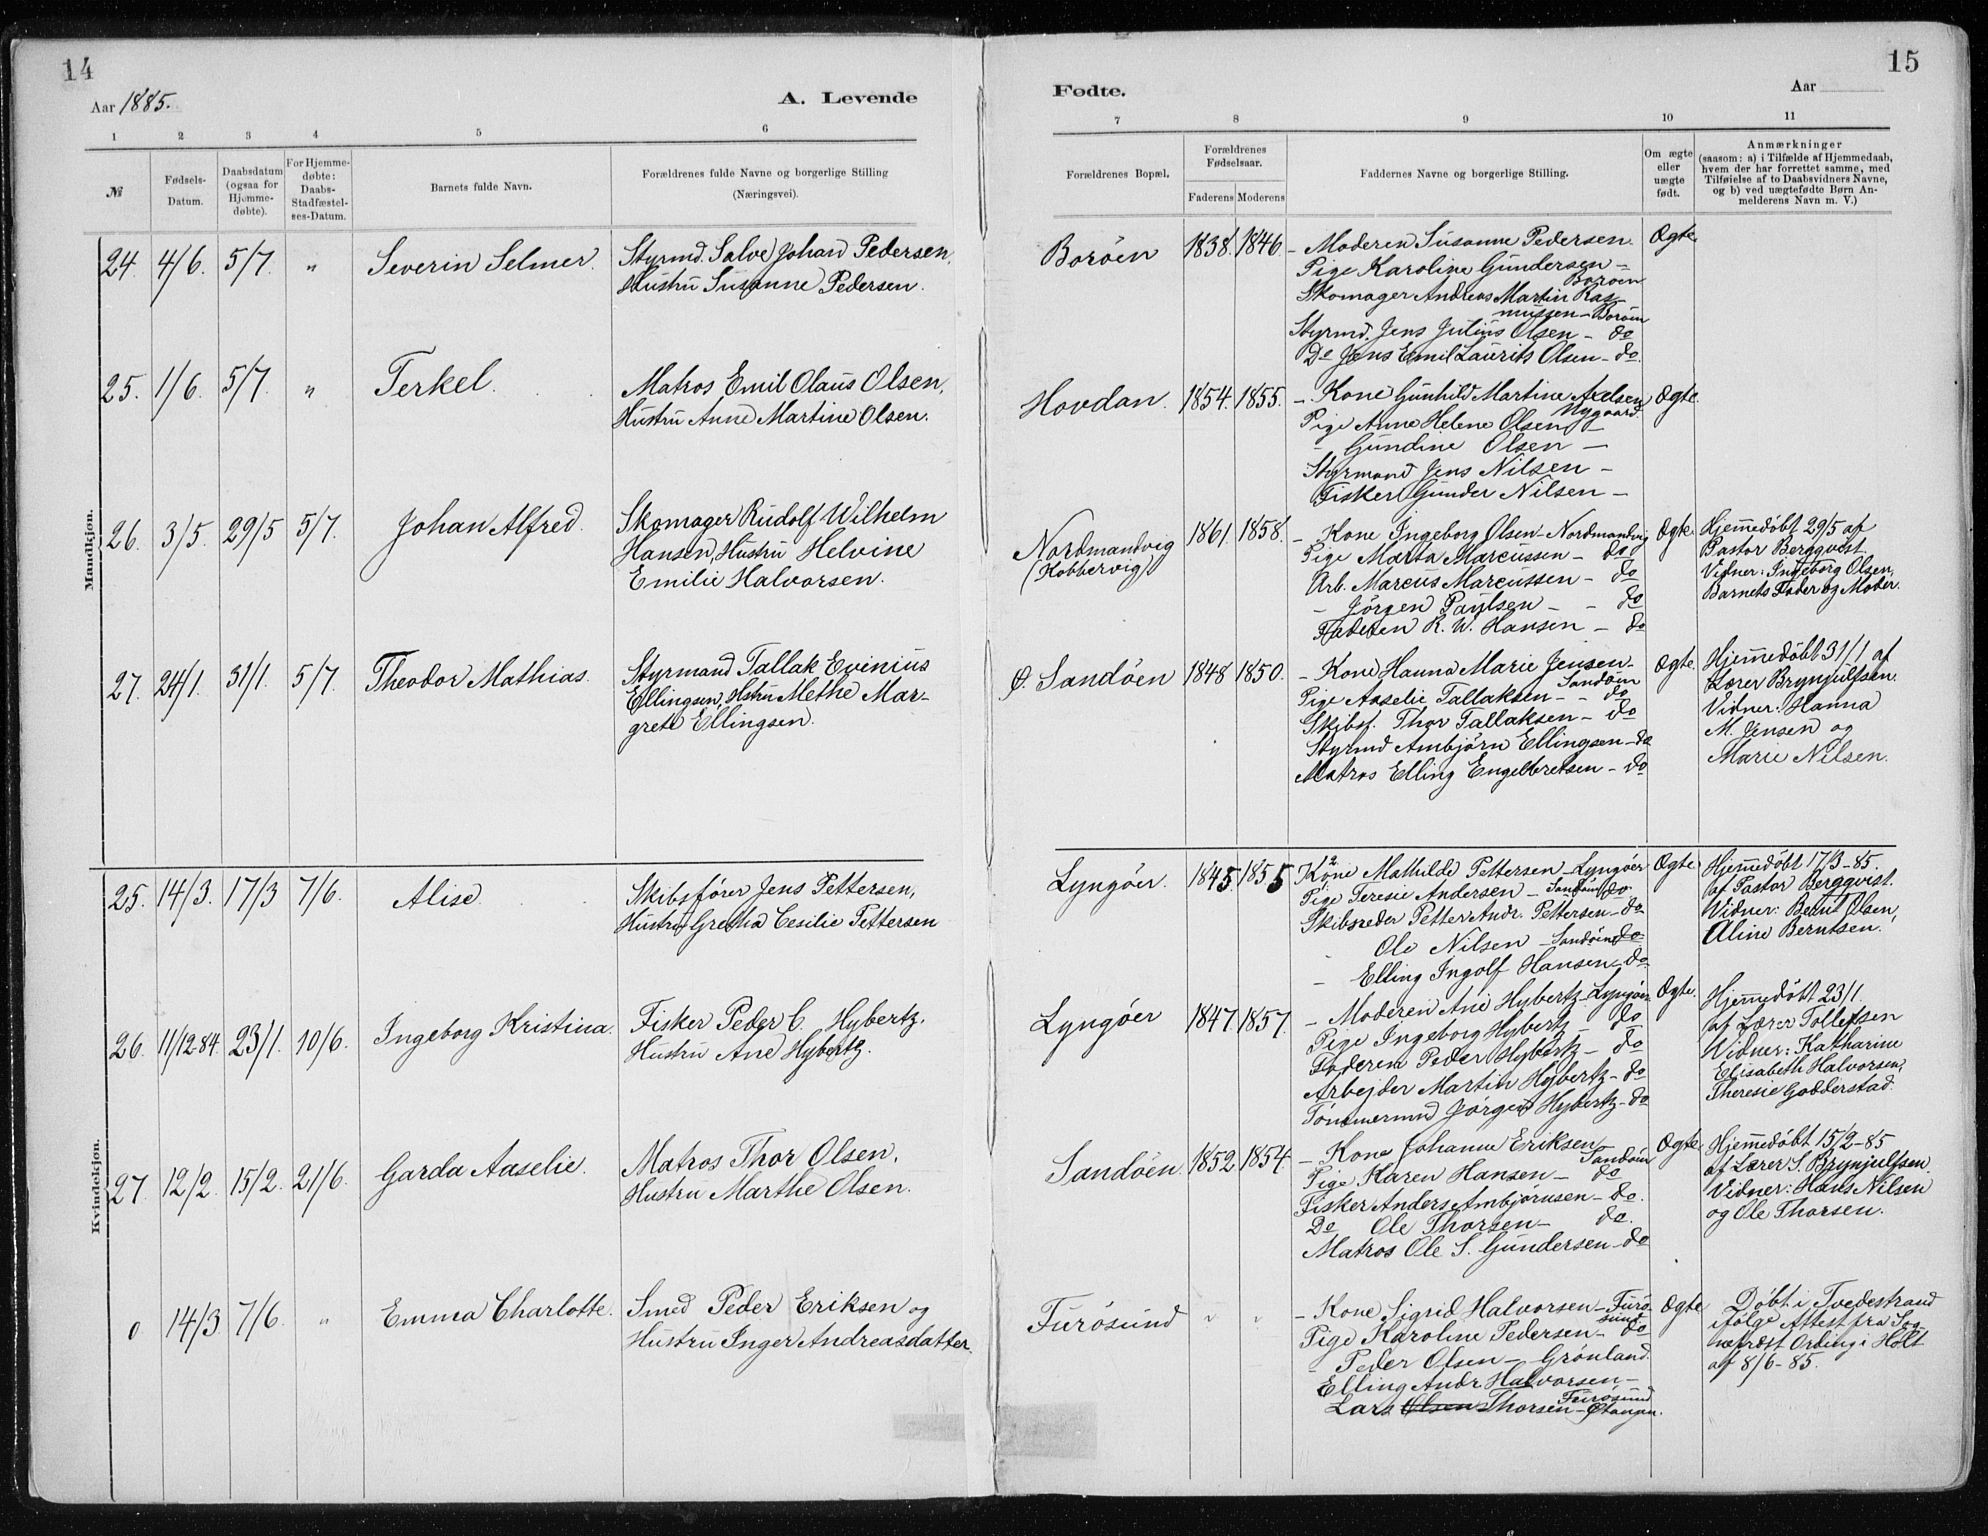 14
Aar 1885.
A. Levende
1 2 3 4 5 6
№
Fødsels-
Datum.
Daabsdatum
(ogsaa for
Hjemme-
døbte).
For Hjemme-
døbte:
Daabs-
Stadfæstel-
ses-Datum.
Barnets fulde Navn.
Forældrenes fulde Navne og borgerlige Stilling
(Næringsvei).
Mandkjøn.
24. 4/6. 5/7. " Severin Selmer. Styrmd. Salve Johan Pedersen,
Hustru Susanne Pedersen.
25. 1/6. 5/7. " Terkel. Matros Emil Olaus Olsen,
Hustru Anne Martine Olsen.
26. 3/5. 29/5 5/7. Johan Alfred. Skomager Rudolf Wilhelm
Hansen, Hustru Helvine
Emilie Halvorsen.
27. 24/1. 31/1. 5/7. Theodor Mathias. Styrmand Tallak Evinius
Ellingsen, Hstru Methe Mar-
grete Ellingsen.
Kvindekjøn.
25. 14/3. 17/3 7/6. Alise. Skibsfører Jens Pettersen,
Hustru Gretha Cesilie Pettersen
26. 11/12-84. 23/1. 10/6. Ingeborg Kristina. Fisker Peder C. Hybertz,
Hustru Ane Hybertz.
27. 12/2. 15/2. 21/6. Garda Aaselie. Matros Thor Olsen,
Hustru Marthe Olsen.
0 14/3 7/6. " Emma Charlotte. Smed Peder Eriksen og
Hustru Inger Andreasdatter.
15
Fødte.
Aar
7 8 9 10 11
Forældrenes Bopæl.
Forældrenes
Fødselsaar.
Faderens Moderens
Faddernes Navne og borgerlige Stilling.
Om ægte
eller
uægte
født.
Anmærkninger
(saasom: a) i Tilfælde af Hjemmedaab,
hvem der har forrettet samme, med
Tilføielse af to Daabsvidners Navne,
og b) ved uægtefødte Børn An-
melderens Navn m. V.)
Borøen 1838. 1846. – Moderen Susanne Pedersen. Ægte.
Pige Karoline Gundersen –
Borøen
Skomager Andreas Martin Ras-
mussen – Borøen
Styrmd. Jens Julius Olsen – do
Do Jens Emil Laurits Olsen – do.
Hovdan. 1854. 1855. – Kone Gunhild Martine Axelsen Ægte.
Nygaard.
Pige Anne Helene Olsen –
– Gundine Olsen –
Styrmand Jens Nilsen –
Fisker Gunder Nilsen –
Nordmandvig
(Kobbervig) 1861. 1858. – Kone Ingeborg Olsen – Nordmandvig Ægte. Hjemmedøbt 29/5 af
Pige Marta Marcussen – do Pastor Bergqvist.
Arb. Marcus Marcussen – do Vidner: Ingeborg Olsen,
– Jørgen Paulsen – – do Barnets Fader og Moder.
Faderen R. W. Hansen – do
Ø. Sandøen 1848 1850. – Kone Hanna Marie Jensen – Ægte. Hjemmedøbt 31/1 af
Sandøen Lærer Brynjulfsen.
Pige Aaselie Tallaksen – do Vidner: Hanna
Skibsf. Thor Tallaksen – do M. Jensen og
Styrmd Ambjørn Ellingsen – do Marie Nilsen.
Matros Elling Engelbretsen – do
Lyngøer. 1845 1855 Kone Mathilde Pettersen – Lyngøer Ægte. Hjemmedøbt 17/3-85.
Pige Teresie Andersen – Sandøen do. af Pastor Bergqvist.
Skibsreder Petter Andr. Pettersen – do Vidner: Bernt Olsen,
Ole Nilsen – Sandøen do Aline Berntsen.
– Elling Ingolf Hansen – do.
Lyngøer 1847. 1857. – Moderen Ane Hybertz – Lyngøer Ægte. Hjemmedøbt 23/1.
Pige Ingeborg Hybertz – do af Lærer Tollefsen
Faderen Peder Hybertz – do Vidner: Katharine
Arbejder Martin Hybertz – do Elisabeth Halvorsen,
Tømmermd Jørgen Hybertz – do Theresie Godderstad.
Sandøen. 1852 1854. – Kone Johanne Eriksen – Ægte. Hjemmedøbt 15/2-85
Sandøen af Lærer S. Brynjulfsen.
Pige Karen Hansen – do Vidner: Hans Nilsen
Fisker Anders Ambjørnsen – do. og Ole Thorsen.
Do Ole Thorsen – do.
Matros Ole S. Gundersen – do
Furøsund " " – Kone Sigrid Halvorsen – Furø- Ægte Døbt i Tvedestrand
sund ifølge Attest fra Sog-
Pige Karoline Pedersen – do nepræst Ording i Holt
– Peder Olsen – Grønland. af 8/6-85.
Elling Andr Halvorsen –
Furøsund
Lars Olsen Thorsen –